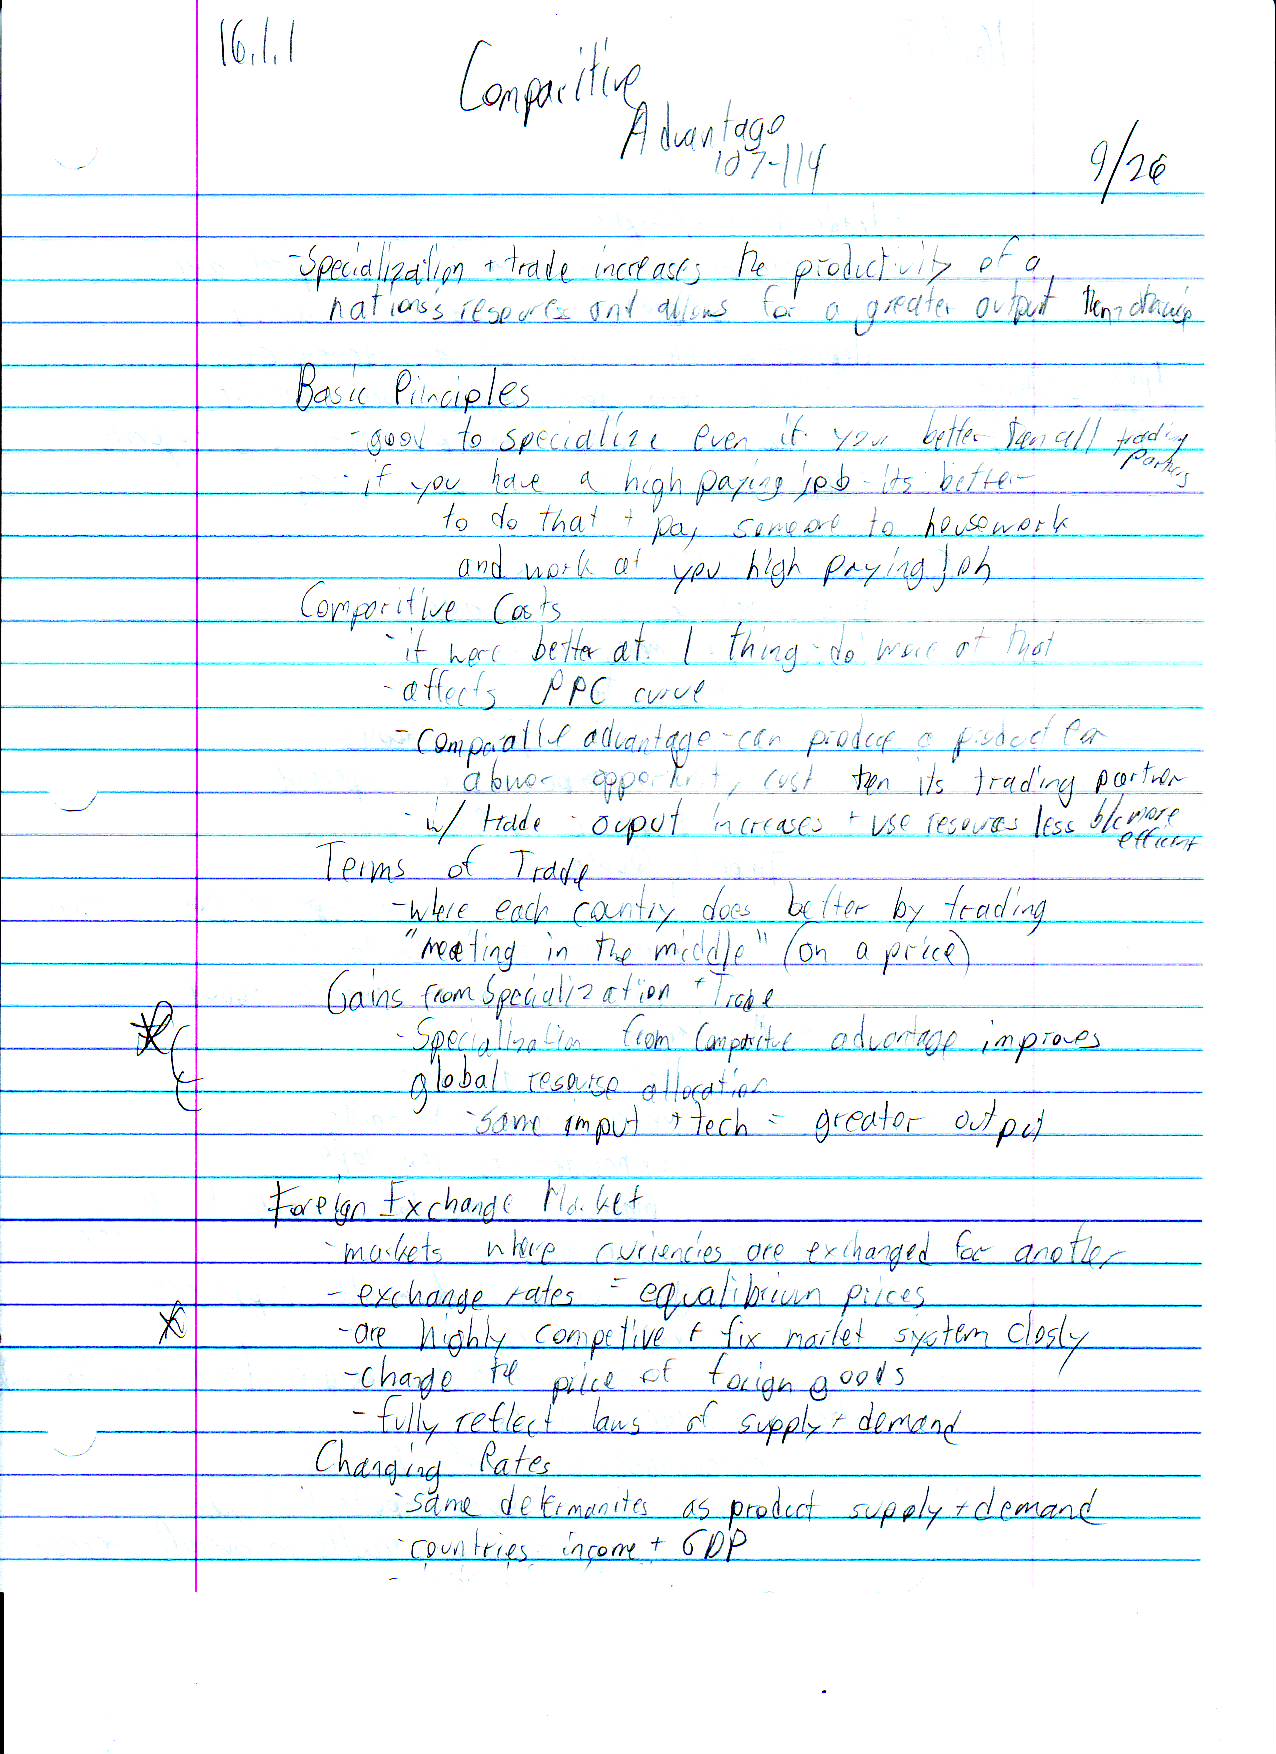 16.1.1
Comparitive
Advantage
107-114
9/26
- Specialization + trade increases the productivity of a
nations's resources and allows for a greater output then
Basic Principles
- good to specialize even if your better than all trading
partners
- if you have a high paying job - its better
to do that + pay someone to housework
and work at you high paying job
Comparitive Costs
- if were better at 1 thing - do more of that
- affects PPC curve
- comparative advantage - can produce a product for
a lower opportunity cost then its trading partner
- w/ trade - ouput increases + use resources less b/c more
efficient
Terms of Trade
- where each country does better by trading
"meeting in the middle" (on a price)
Gains from Specialization + Trade
- Specialization from Comparitive advantage improves
global resource allocation
- same imput + tech = greater output
Foreign Exchange Market
- markets where currencies are exchanged for another
- exchange rates = equalibrium prices
- are highly competive + fix market system closly
- change the price of foriegn goods
- fully reflect laws of supply + demand
Changing Rates
- same determanites as product supply + demand
- countries income + GDP
-